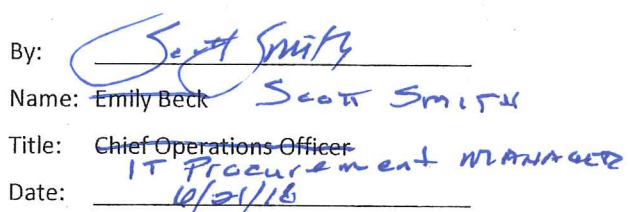 By: Scott Smith
Name: Emily Beck Scott Smith
Title: Chief Operations Officer
IT Procurement Manager
Date: 6/21/18